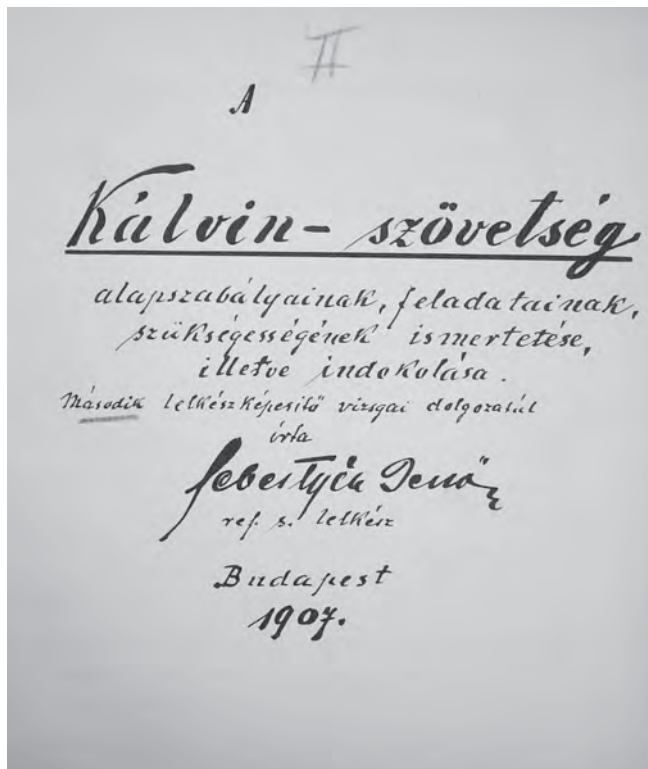 II
A
Kálvin-szövetség
alapszabályainak, feladatainak,
szükségességének ismertetése,
illetve indokolása.
Második lelkészképesitő vizsgai dolgozatúl
írta
Sebestyén Jenő
ref. s. lelkész
Budapest
1907.